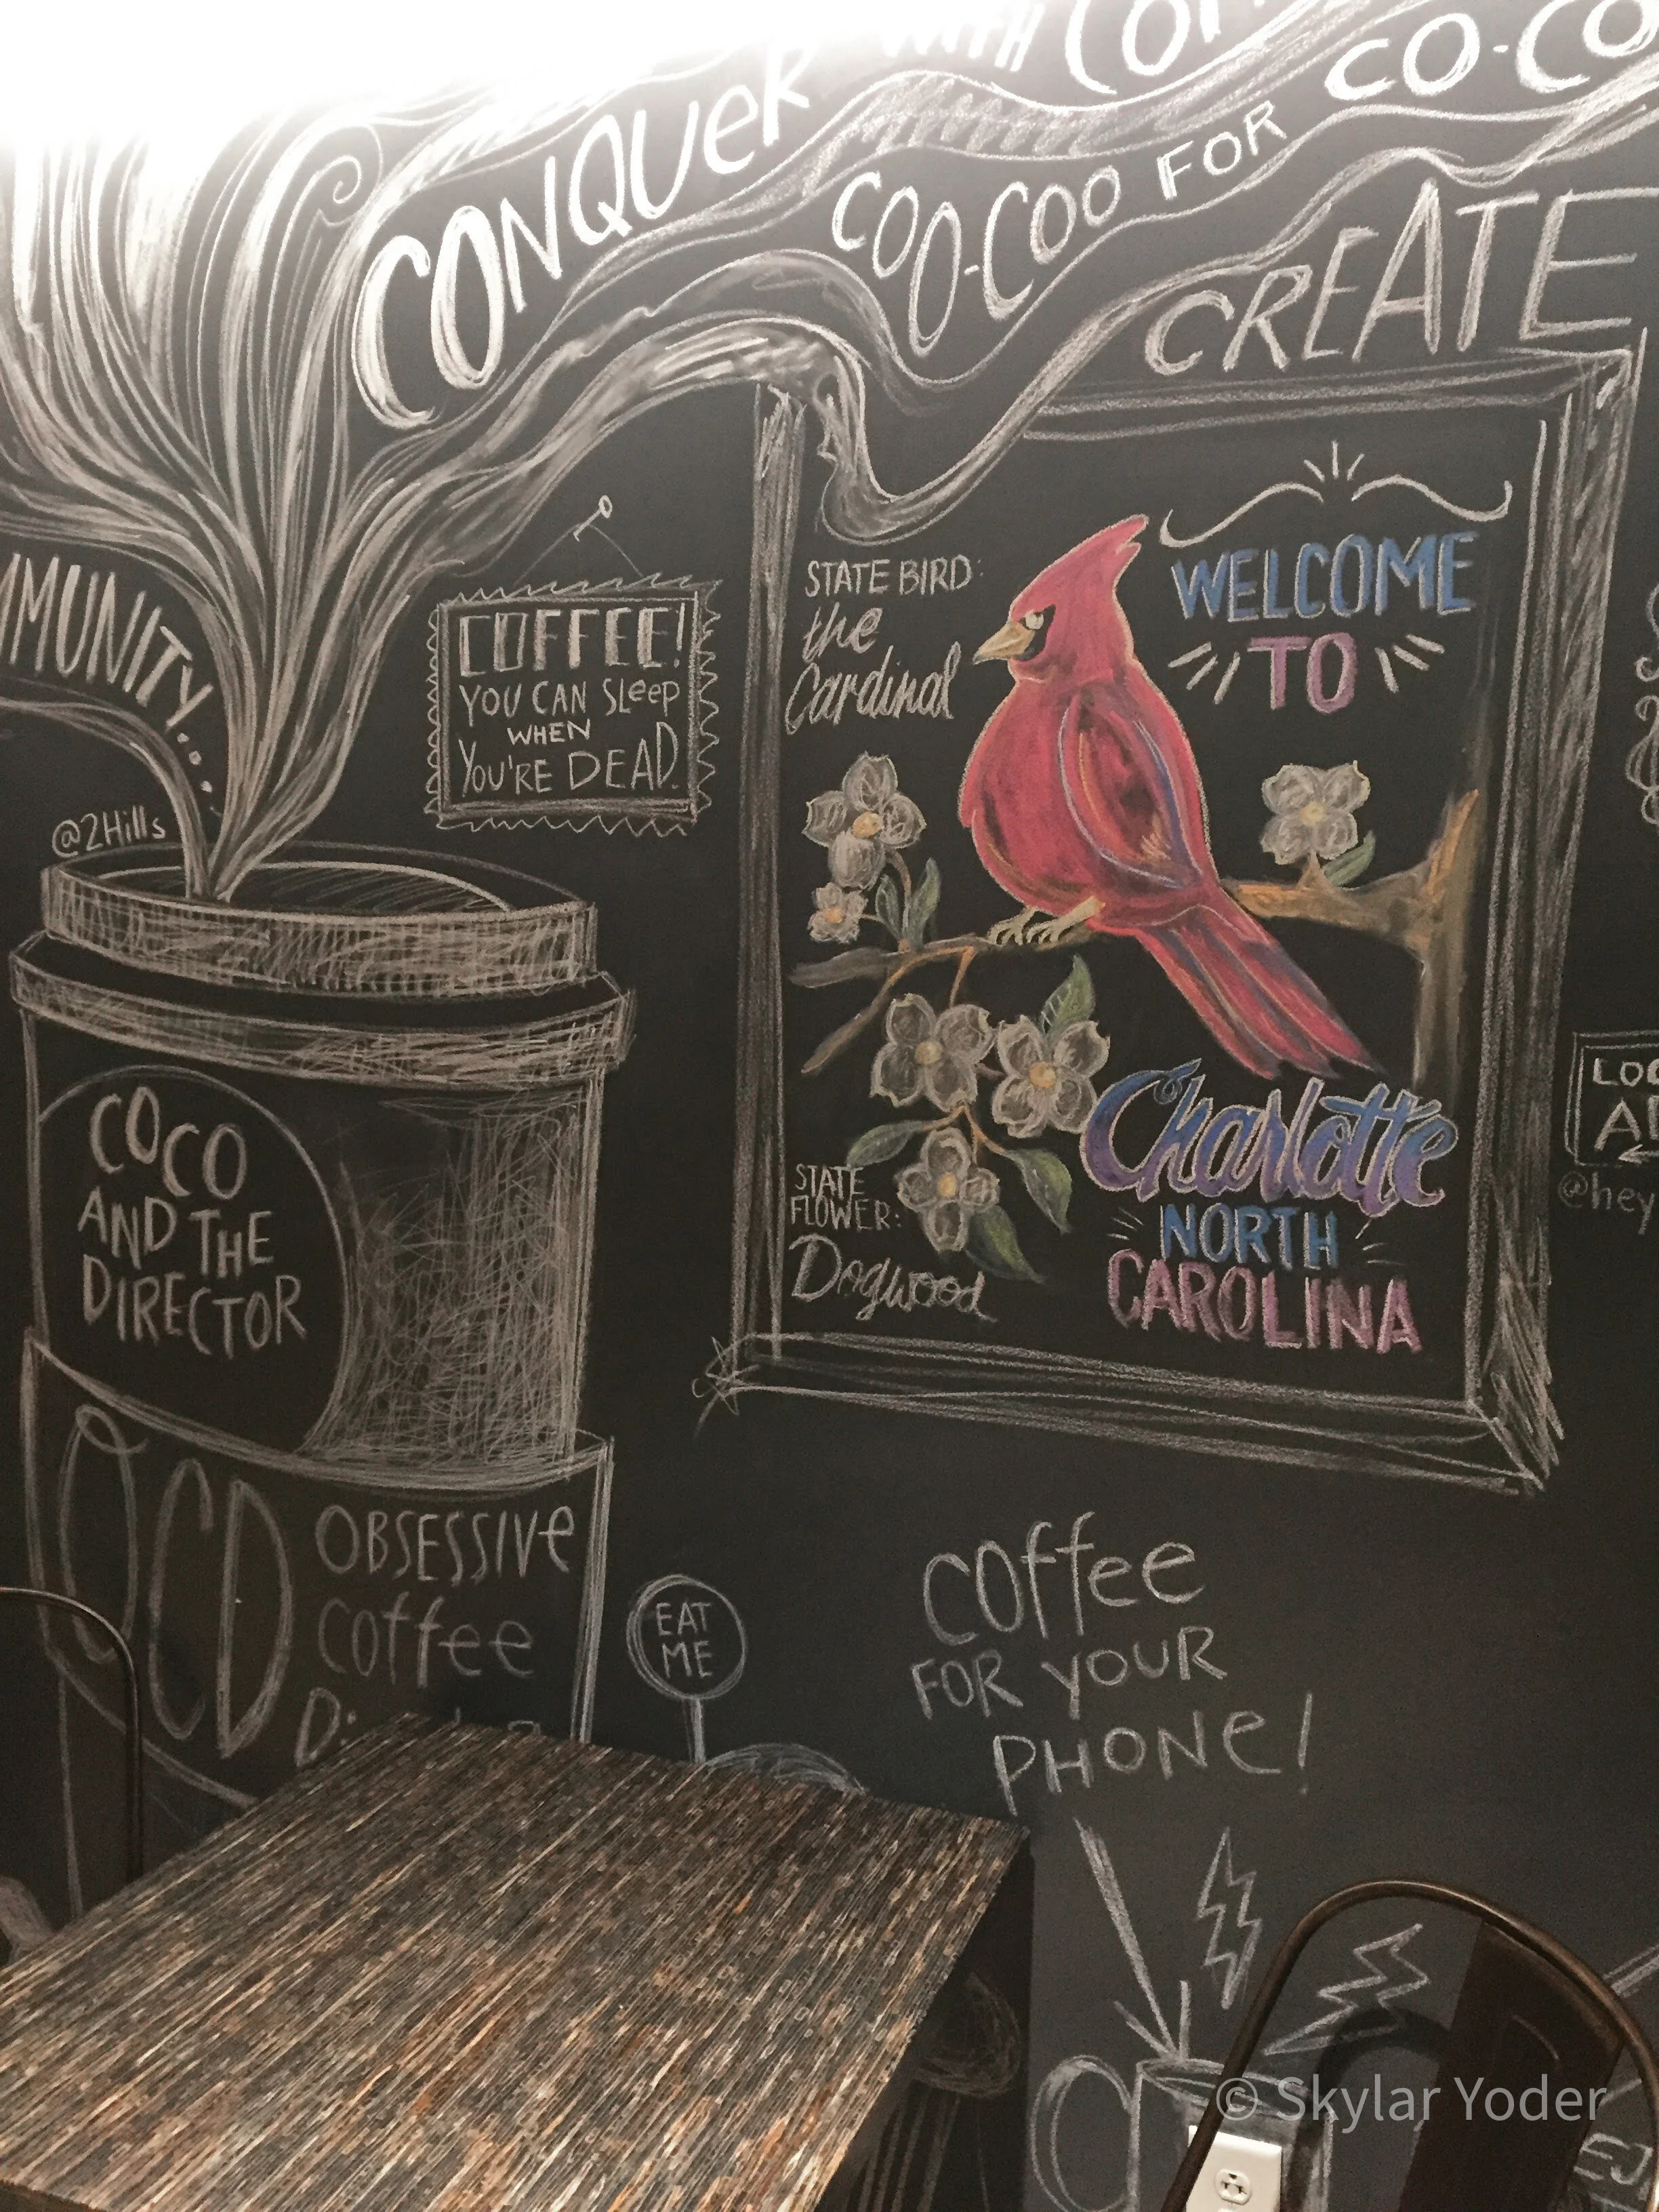 CONQUER WITH
COO-COO FOR CO-CO
CREATE
MMUNITY...
@2Hills
COFFEE!
YOU CAN SLeep
WHEN
YOU'RE DEAD.
STATE BIRD:
the
Cardinal
WELCOME
TO
STATE
FLOWER:
Dogwood
Charlotte
NORTH
CAROLINA
COCO
AND THE
DIRECTOR
OCD
OBSESSIVe
Coffee
EAT
ME
Coffee
FOR YOUR
PHONe!
@hey
© Skylar Yoder